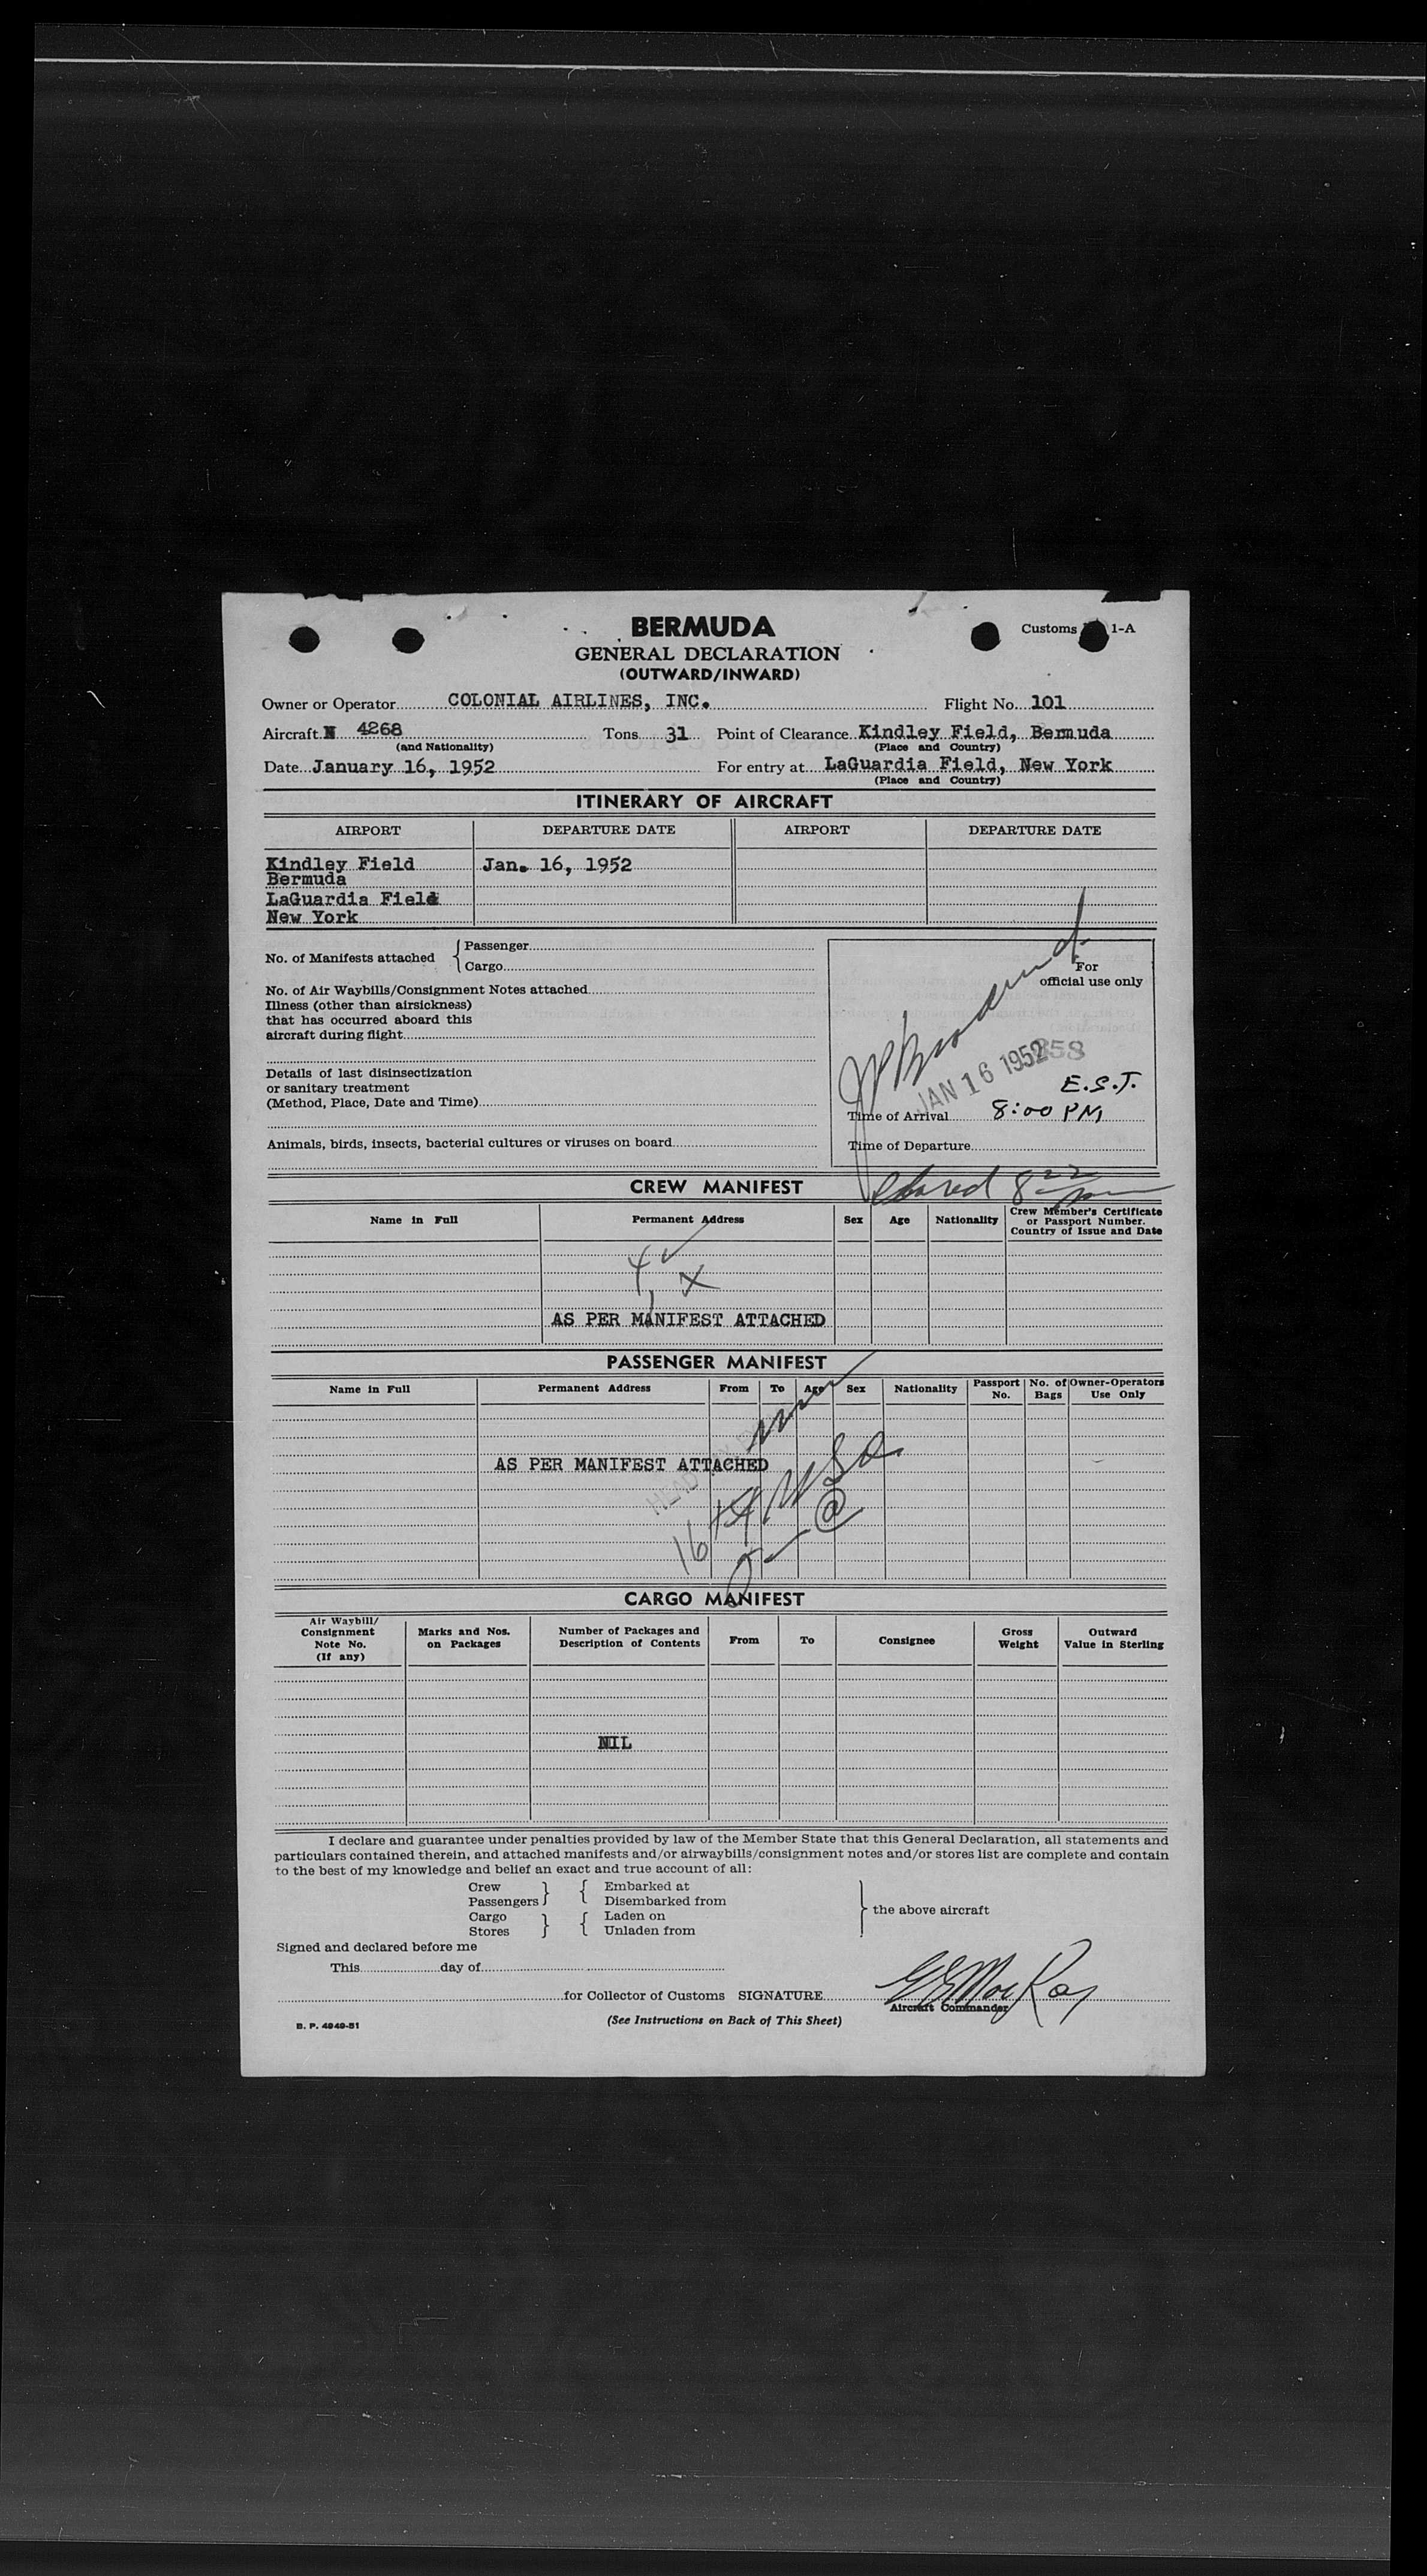 BERMUDA
Customs 1-A
GENERAL DECLARATION
(OUTWARD/INWARD)
Owner or Operator COLONIAL AIRLINES, INC. Flight No. 101
Aircraft N 4268 Tons 31 Point of Clearance Kindley Field, Bermuda
(and Nationality) (Place and Country)
Date January 16, 1952 For entry at LaGuardia Field, New York
(Place and Country)
ITINERARY OF AIRCRAFT
AIRPORT DEPARTURE DATE AIRPORT DEPARTURE DATE
Kindley Field Jan. 16, 1952
Bermuda
LaGuardia Field
New York
No. of Manifests attached { Passenger
Cargo
For
official use only
No. of Air Waybills/Consignment Notes attached
Illness (other than airsickness)
that has occurred aboard this
aircraft during flight
JAN 16 1952 858
Details of last disinsectization
or sanitary treatment
(Method, Place, Date and Time)
E.S.T.
Time of Arrival 8:00 PM
Animals, birds, insects, bacterial cultures or viruses on board
Time of Departure
Cleared 8 22 pm
CREW MANIFEST
Name in Full Permanent Address Sex Age Nationality Crew Member's Certificate
or Passport Number.
Country of Issue and Date
4 ✓
X
AS PER MANIFEST ATTACHED
PASSENGER MANIFEST
Name in Full Permanent Address From To Age Sex Nationality Passport No. No. of Bags Owner-Operators Use Only
AS PER MANIFEST ATTACHED
16
CARGO MANIFEST
Air Waybill/ Consignment Note No. (If any) Marks and Nos. on Packages Number of Packages and Description of Contents From To Consignee Gross Weight Outward Value in Sterling
NIL
I declare and guarantee under penalties provided by law of the Member State that this General Declaration, all statements and
particulars contained therein, and attached manifests and/or airwaybills/consignment notes and/or stores list are complete and contain
to the best of my knowledge and belief an exact and true account of all:
Crew } { Embarked at
Passengers Disembarked from
Cargo } { Laden on
Stores Unladen from
} the above aircraft
Signed and declared before me
This day of
for Collector of Customs SIGNATURE G E MacKay
Aircraft Commander
B. P. 4949-51
(See Instructions on Back of This Sheet)